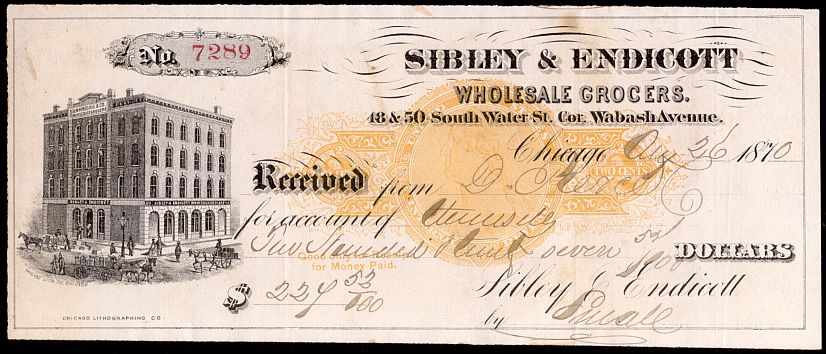 No. 7289
SIBLEY & ENDICOTT
WHOLESALE GROCERS.
48 & 50 South Water St. Cor. Wabash Avenue.
Chicago Aug 26 1870
TWO CENTS
Received from D. Pierce
for account of
Two Hundred & twenty seven 53/100 DOLLARS
Good only as Receipt
for Money Paid.
$ 227 53/100
Sibley & Endicott
by
SIBLEY & ENDICOTT
CHICAGO LITHOGRAPHING CO.